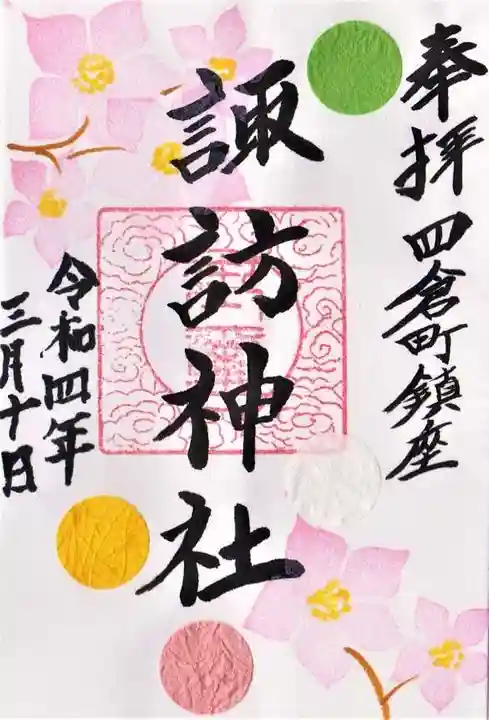 奉拝 四倉町鎮座
諏訪神社
令和四年
三月十日